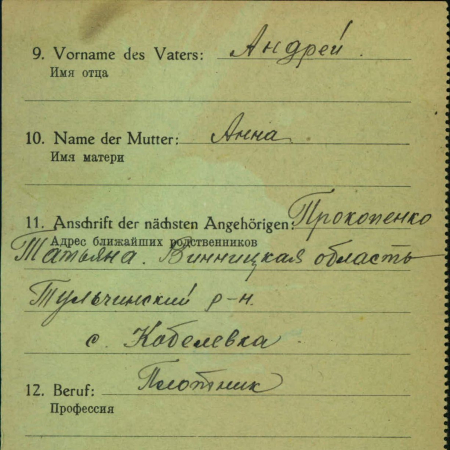 9. Vorname des Vaters: Андрей.
Имя отца
10. Name der Mutter: Анна
Имя матери
11. Anschrift der nächsten Angehörigen: Прокопенко
Адрес ближайших родственников
Татьяна. Винницкая область
Тульчинский р-н.
с. Кобелевка.
12. Beruf: Плотник
Профессия